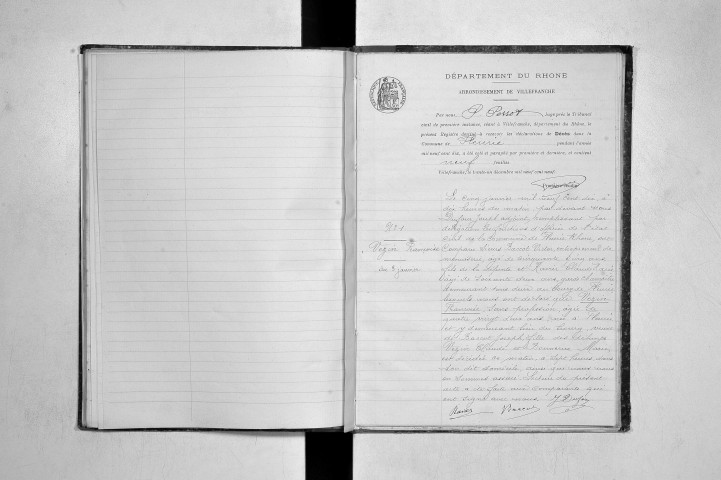 DÉPARTEMENT DU RHONE
ARRONDISSEMENT DE VILLEFRANCHE
Par nous P. Perrot Juge près le Tribunal
civil de première instance, séant à Villefranche, département du Rhône, le
présent Registre destiné à recevoir les déclarations de Décès dans la
Commune de Fleurie pendant l'année
mil neuf cent dix, a été coté et paraphé par première et dernière, et contient
neuf feuillets.
Villefranche, le trente un décembre mil neuf cent neuf.
N° 1
Vézin Françoise
du 5 janvier
Le cinq janvier mil neuf cent dix, à
dix heures du matin par devant nous
Dufour Joseph adjoint, remplissant par
délégation les fonctions d'officier de l'état
civil de la Commune de Fleurie Rhône, ont
Comparu Sieurs
âgé de cinquante cinq ans
fils de la défunte et Claude
âgé de soixante deux ans,
demeurant tous deux au bourg de Fleurie
lesquels nous ont déclaré que Vézin
Françoise, sans profession, âgée de
quatre vingt deux ans née à Fleurie
et y demeurant lieu du bourg veuve
de Joseph fille des défunts
Vézin Claude et Marie
est décédée ce matin, à sept heures dans
son dit domicile, ainsi que nous nous
en sommes assuré. Lecture du présent
acte a été faite aux comparants qui
ont signé avec nous J Dufour